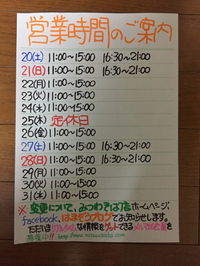 営業時間のご案内
20(土) 11:00～15:00 16:30～21:00
21(日) 11:00～15:00 16:30～21:00
22(月) 11:00～15:00
23(火) 11:00～15:00
24(水) 11:00～15:00
25(木) 定休日
26(金) 11:00～15:00
27(土) 11:00～15:00 16:30～21:00
28(日) 11:00～15:00 16:30～21:00
29(月) 11:00～15:00
30(火) 11:00～15:00
31(水) 11:00～15:00
※変更について、みつわそば店ホームページ、
facebook、はまぞうブログでお知らせします。
な情報をゲットできるメルマガ会員を